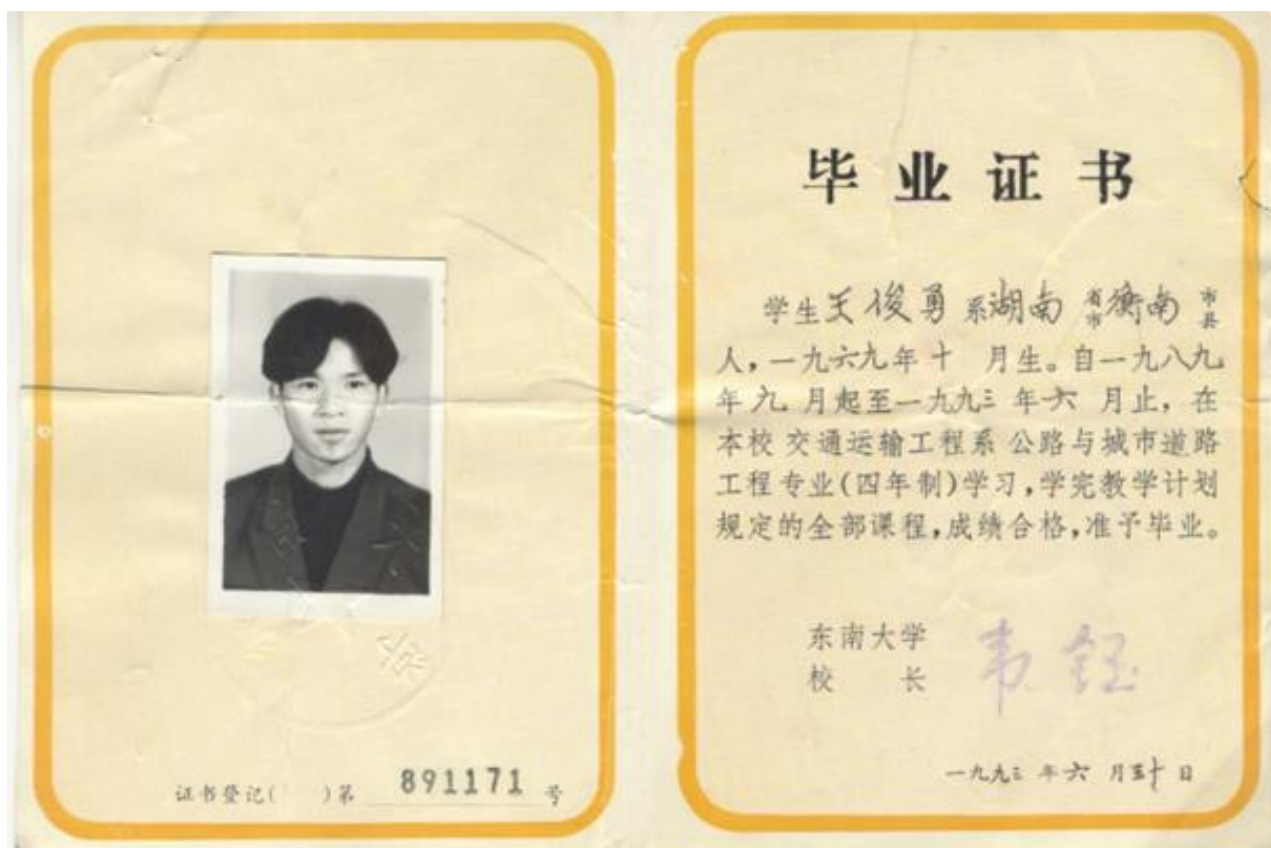 证书登记( )第 891171 号
毕业证书
学生王俊勇系湖南省市衡南市县
人，一九六九年十 月生。自一九八九
年九月起至一九九三年六月止，在
本校交通运输工程系公路与城市道路
工程专业(四年制)学习，学完教学计划
规定的全部课程，成绩合格，准予毕业。
东南大学
校 长 韦钰
一九九三年六月 十日